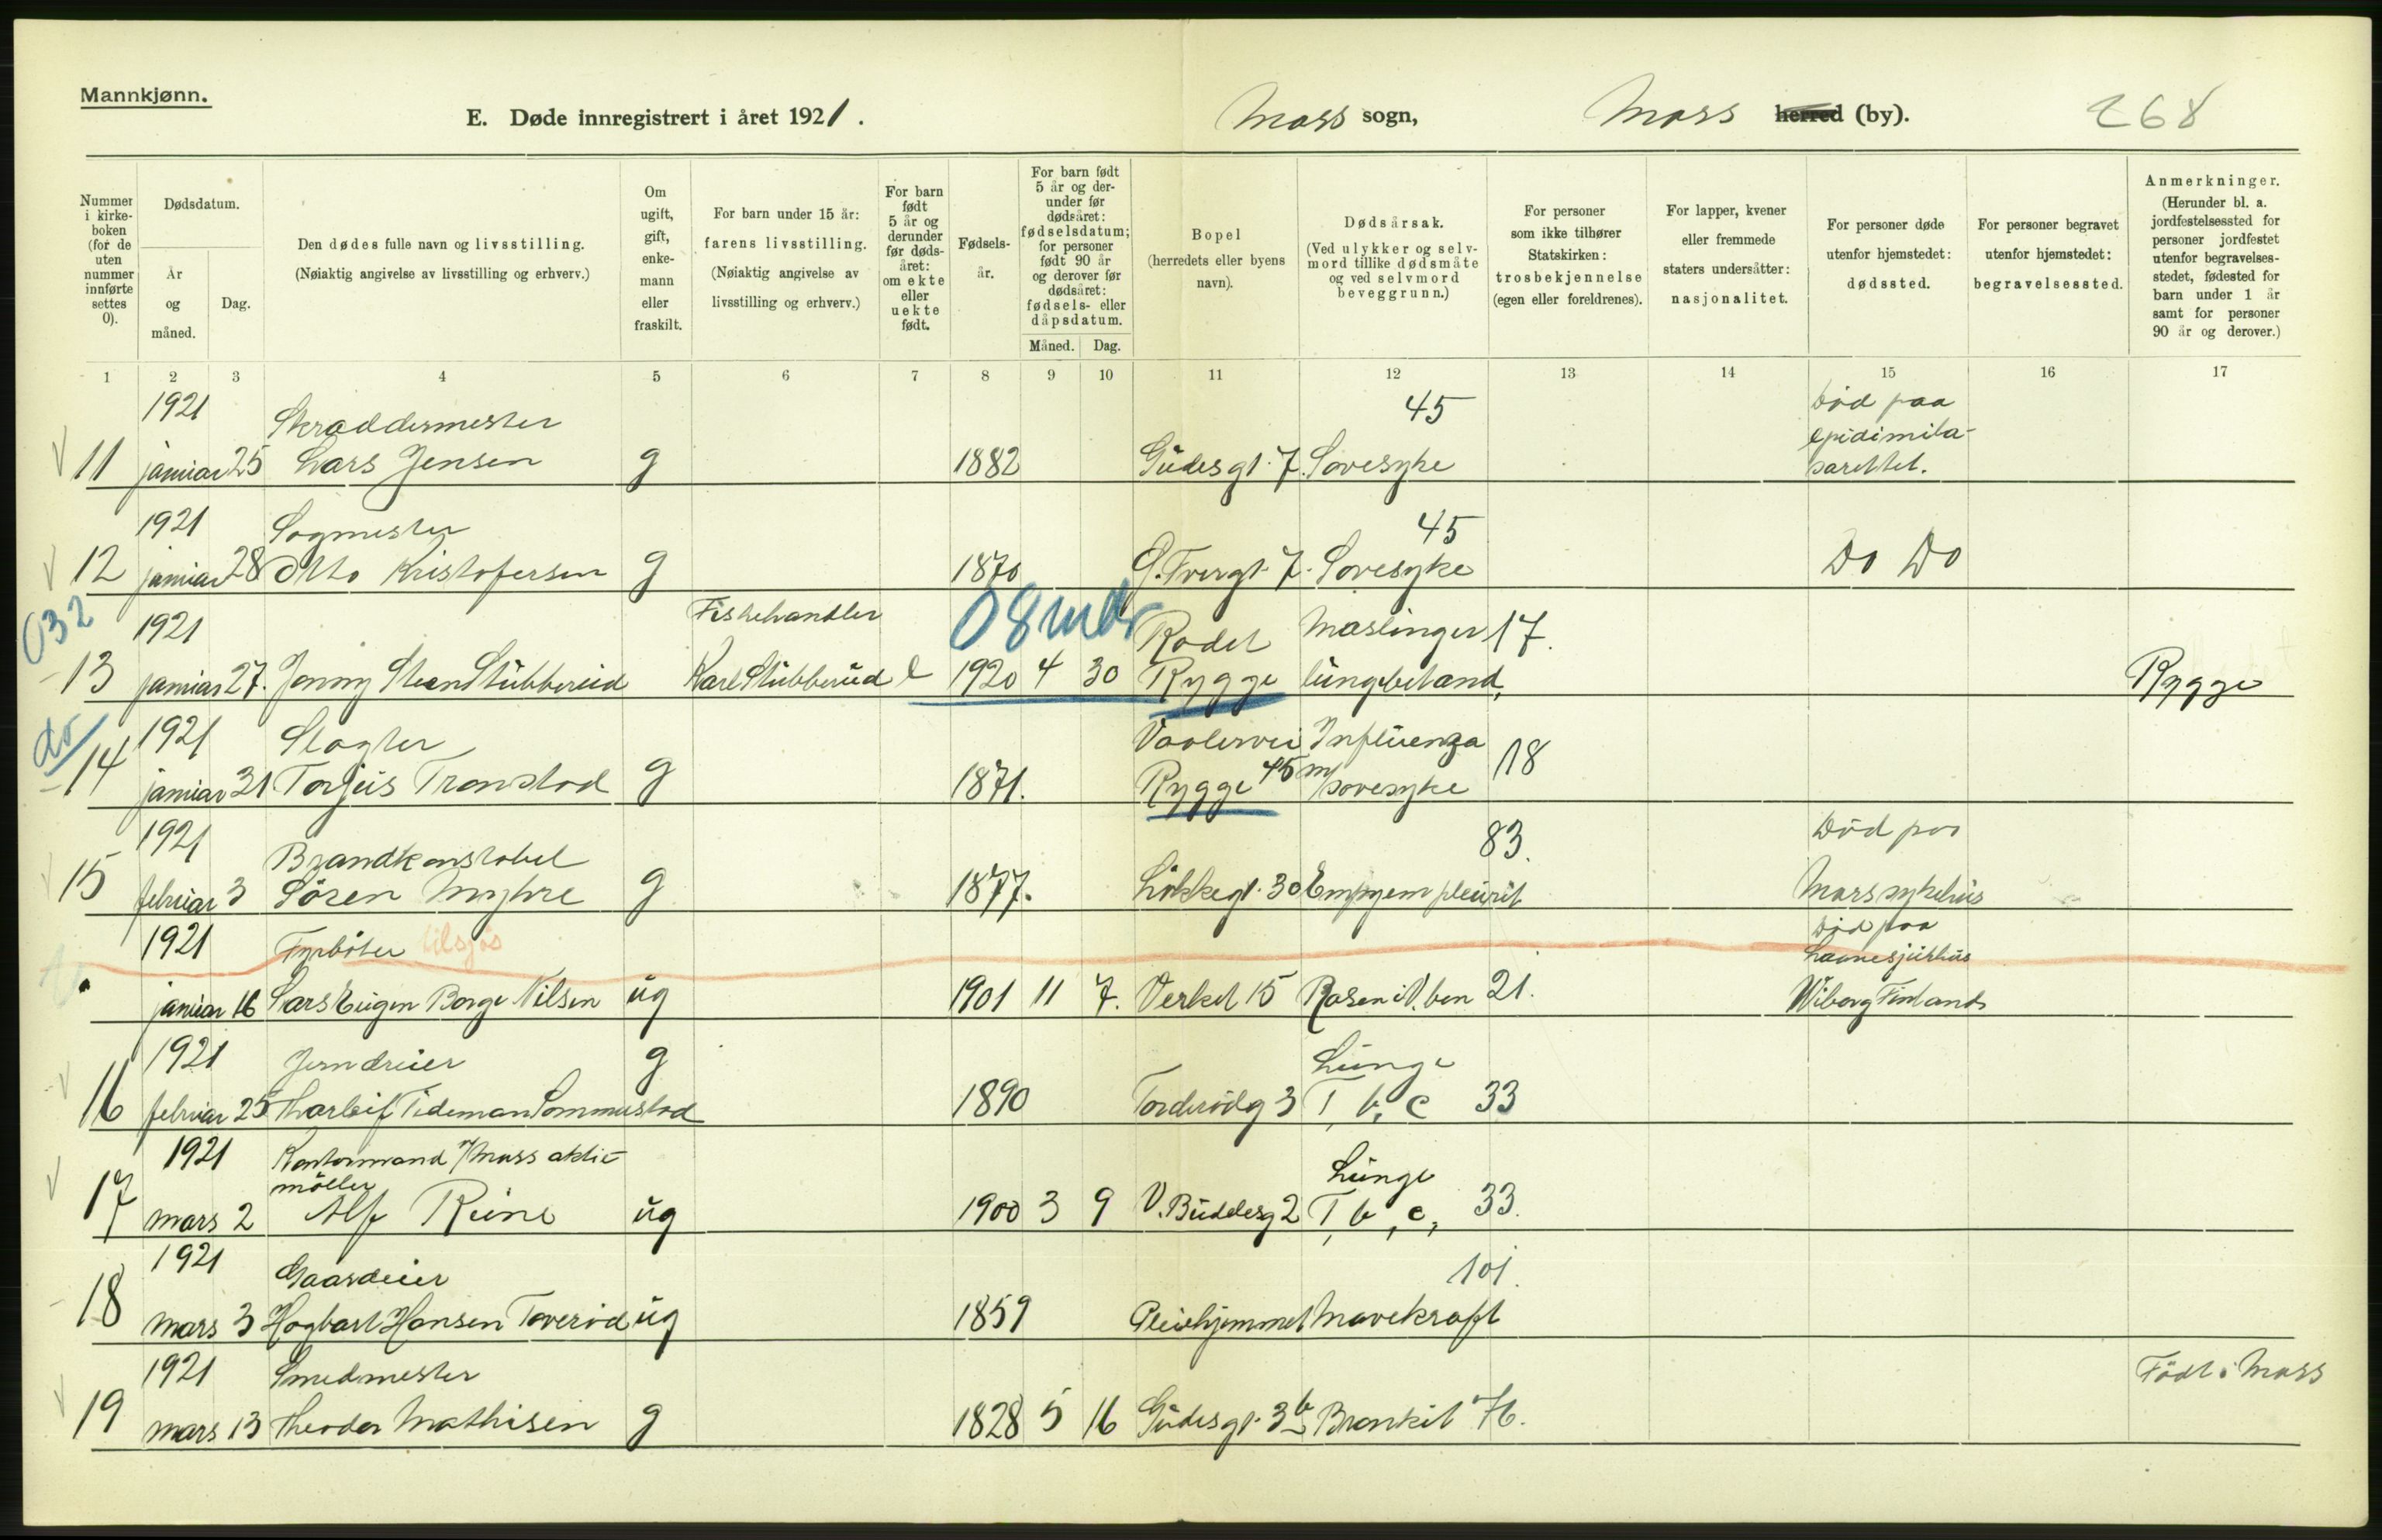 Mannkjønn.
E. Døde innregistrert i året 1921.
Moss sogn,
Moss herred (by).
268
Nummer i kirke-boken (for de uten nummer innførte settes 0).
Dødsdatum.
År og måned.
Dag.
Den dødes fulle navn og livsstilling.
(Nøiaktig angivelse av livsstilling og erhverv.)
Om ugift, gift, enke-mann eller fraskilt.
For barn under 15 år: farens livsstilling.
(Nøiaktig angivelse av livsstilling og erhverv.)
For barn født 5 år og derunder før døds-året: om ekte eller uekte født.
Fødsels-år.
For barn født 5 år og der-under før dødsåret: fødselsdatum; for personer født 90 år og derover før dødsåret: fødsels- eller dåpsdatum.
Måned.
Dag.
Bopel
(herredets eller byens navn).
Dødsårsak.
(Ved ulykker og selv-mord tillike dødsmåte og ved selvmord beveggrunn.)
For personer som ikke tilhører Statskirken: trosbekjennelse (egen eller foreldrenes).
For lapper, kvener eller fremmede staters undersåtter: nasjonalitet.
For personer døde utenfor hjemstedet: dødssted.
For personer begravet utenfor hjemstedet: begravelsessted.
Anmerkninger.
(Herunder bl. a. jordfestelsessted for personer jordfestet utenfor begravelses-stedet, fødested for barn under 1 år samt for personer 90 år og derover.)
1 2 3 4 5 6 7 8 9 10 11 12 13 14 15 16 17
1921 Skraddermester 45 Død paa epidimila-
11 januar 25 Lars Jensen g 1882 Gudesgt. 7. Sovesyke sarettet.
1921 Sagmester 45
12 januar 28 Otto Kristofersen g 1870 G. Tvergt. 7. Sovesyke Do Do
032 1921 Fiskehandler 08 mdr Rodet Maslinger 17.
13 januar 27. Jonny Steen Stubberud Karl Stubberud e 1920 4 30 Rygge lungebetand, Rygge
do 1921 Slagter Vaalervei Influenza
14 januar 31 Torjus Tronstad g 1871. Rygge 45 m/sovesyke 18
1921 Brandkonstabel 83. Død paa
15 februar 3 Sören Myhre g 1877. Løkkegt. 30 Empyem pleurit Moss sykehus
1921 Fyrböter tilsjøs Død paa
Laanesjukhus
januar 16 Lars Eugen Borge Nilsen ug 1901 11 7. Verket 15 Rosen i V. ben 21. Wiborg Finland
1921 Jerndreier g Lunge
16 februar 25 Tharleif Tideman Sommerstad 1890 Torderödg 3 T, b, c 33
1921 Kontormand v/Moss aktie-
möller Lunge
17 mars 2 Alf Reine ug 1900 3 9 V. Buddesg 2 T, b, c, 33.
1921 Gaardeier 101.
18 mars 3 Hagbart Hansen Taveröd ug 1859 Pleiehjemmet Mavekraft
1921 Smedmester Födt i Moss
19 mars 13 Theodor Mathisen g 1828 5 16 Gudesgt. 3b Bronkit 76.